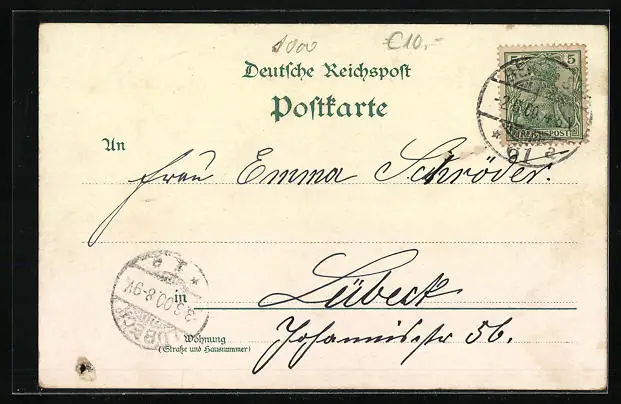 €10,-
Deutsche Reichspost
Postkarte
5 5
REICHSPOST
An
Frau Emma Schröder.
in Lübeck
Johannisstr 56.
Wohnung
(Straße und Hausnummer)
LÜBECK
3.5.00.8-9V.